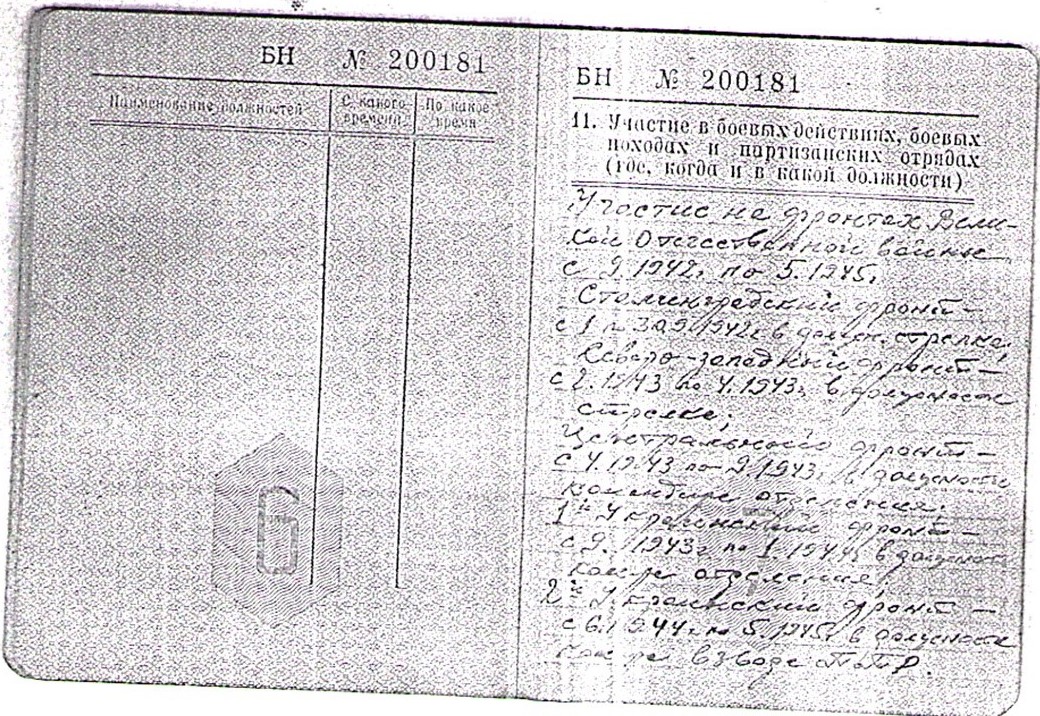 БН № 200181
Наименование должностей
С какого времени
По какое время
6
БН № 200181
11. Участие в боевых действиях, боевых
походах и партизанских отрядах
(где, когда и в какой должности)
Участие на фронтах Вели-
кой Отечественной войны
с 9.1942г по 5.1945г
Сталинградский фронт –
с 1 по 30.9.1942г в должн. стрелка,
Северо-западный фронт –
с 2.1943 по 4.1943г в должности
стрелка;
Центрального фронт –
с 4.1943 по 9.1943г в должности
командира отделения.
1й Украинский фронт –
с 9.1943г по 1.1944г в должност
ком-ра отделения.
2й Украинский фронт –
с 6.1944г по 5.1945г в должности
ком-ра взвода ПТР.